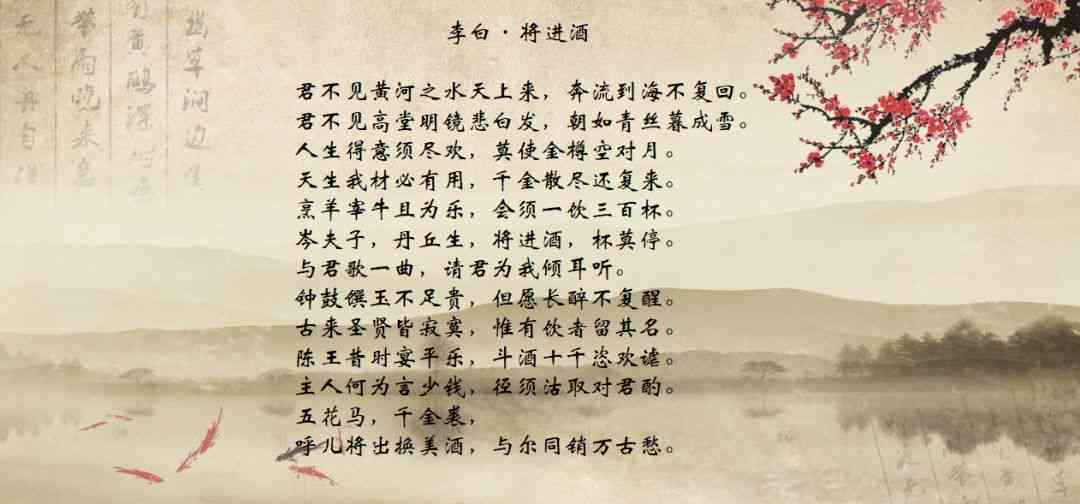 李白·将进酒
君不见黄河之水天上来，奔流到海不复回。
君不见高堂明镜悲白发，朝如青丝暮成雪。
人生得意须尽欢，莫使金樽空对月。
天生我材必有用，千金散尽还复来。
烹羊宰牛且为乐，会须一饮三百杯。
岑夫子，丹丘生，将进酒，杯莫停。
与君歌一曲，请君为我倾耳听。
钟鼓馔玉不足贵，但愿长醉不复醒。
古来圣贤皆寂寞，惟有饮者留其名。
陈王昔时宴平乐，斗酒十千恣欢谑。
主人何为言少钱，径须沽取对君酌。
五花马，千金裘，
呼儿将出换美酒，与尔同销万古愁。
幽草涧边生
黄鹂深
带雨晚来急
无人舟自